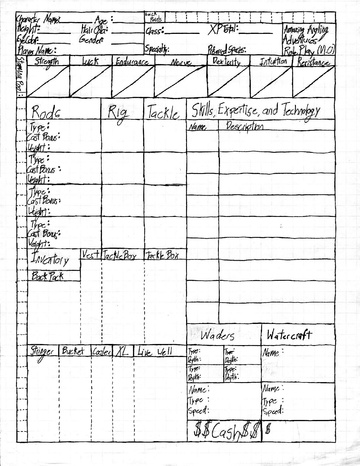 Character Name: Age:
Height: Hair Color: Class: XP Total: Amazing Angling
Gender Adventures
Player Name: Specialty: Role Play (V1.0)
Strength Luck Endurance Nerve Dexterity Intuition Resistance
Rods Rig Tackle Skills, Expertise, and Technology
Name Description
Type:
Cast Bonus:
Weight:
Type:
Cast Bonus:
Weight:
Type:
Cast Bonus:
Weight:
Type:
Cast Bonus:
Weight:
Inventory Vest Tackle Box Tackle Box
Back Pack
Waders Watercraft
Stringer Bucket Cooler XL Live Well
Type: Type: Name:
Depth: Depth:
Type: Type:
Depth: Depth:
Name: Name:
Type: Type:
Speed: Speed:
$$Cash$$ $